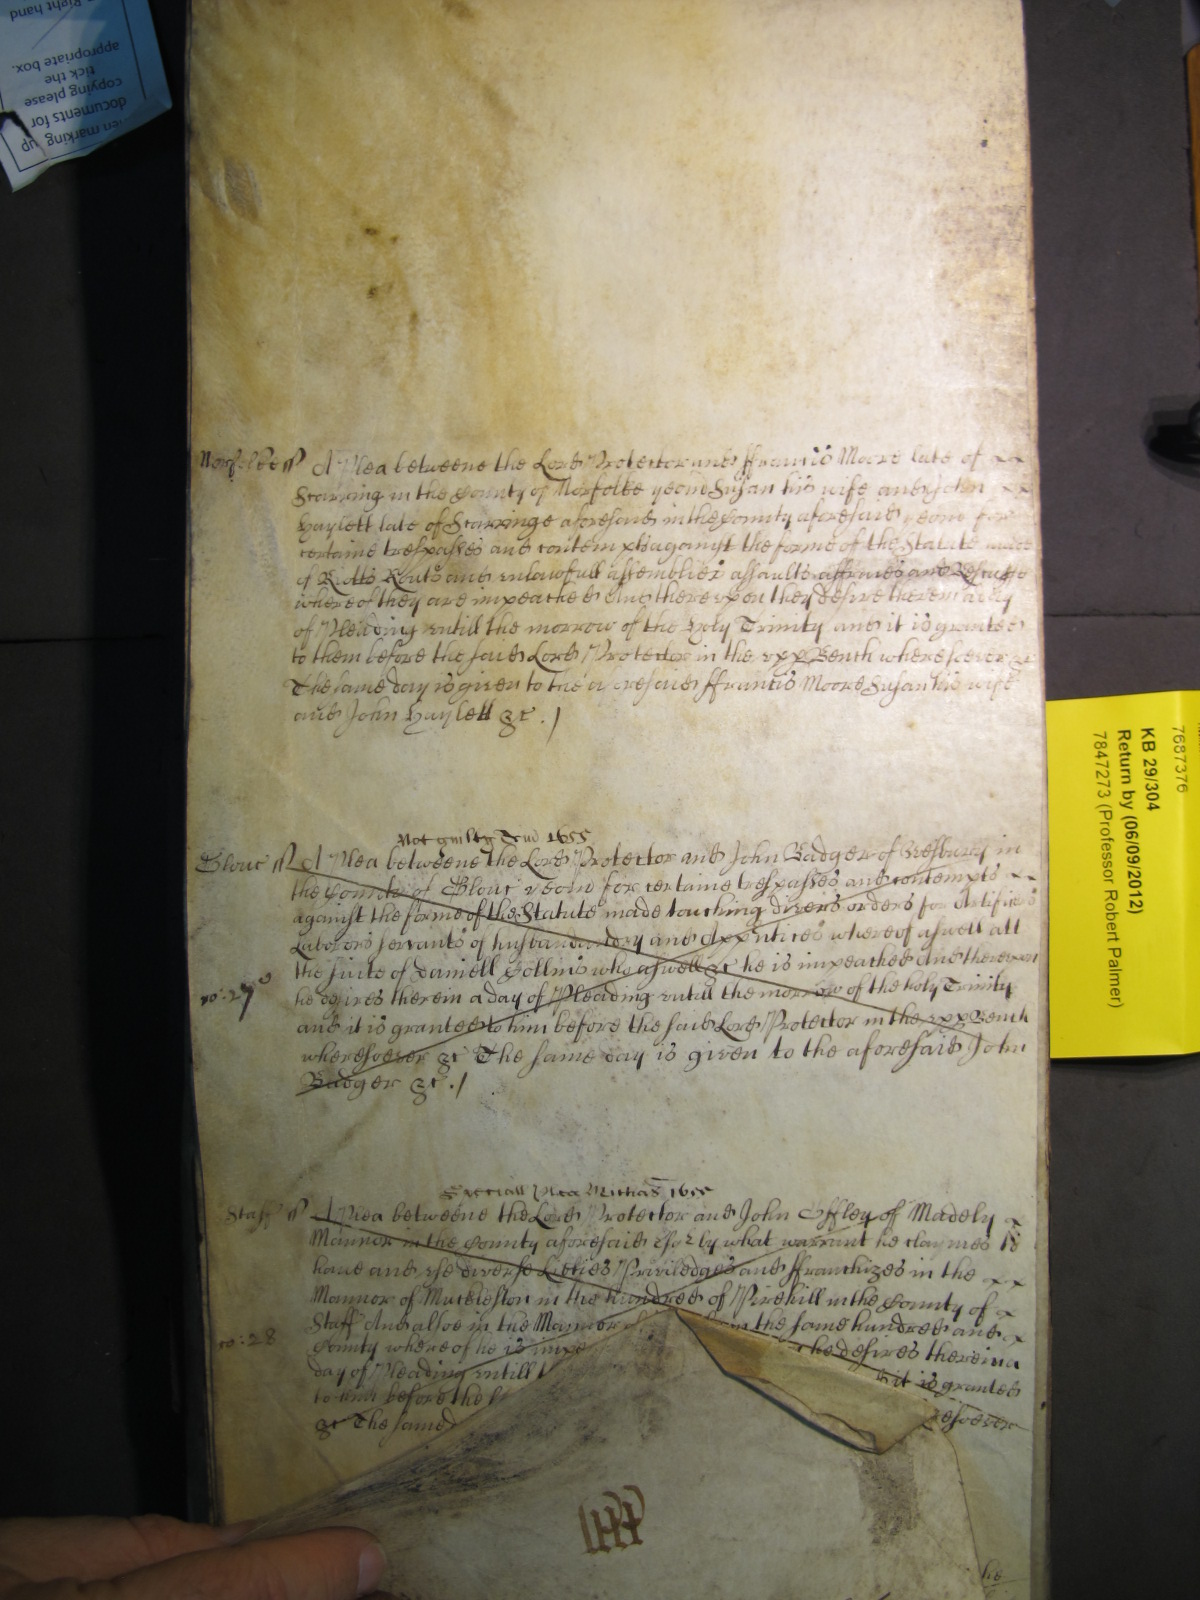 Norfolke ss A Plea betweene the Lord Protector and ffrancis Moore late of
Starring in the County of Norfolke yeom Susan his wife and John
Haylett late of Starringe aforesaid in the County aforesaid yeom for
certaine trespasses and contempts against the forme of the Statute made
of Riotts Routs and unlawfull assemblies assaults affraies and
whereof they are impeached And thereupon they desire therein a day
of Pleading untill the morrow of the Holy Trinity and it is granted
to them before the said Lord Protector in the upp Bench wheresoever &c
The same day is given to the aforesaid ffrancis Moore Susan his wife
and John Haylett &c .
Not guilty Trin 1655
Glouc ss A Plea betweene the Lord Protector and John Badger of in
the County of Glouc yeom for certaine trespasses and contempts
against the forme of the Statute made touching divers orders for Artificers
Laborors servants of husbandry and Apprentices whereof aswell att
the suite of Daniell Collins who aswell &c he is impeached And thereupon
ro: 27
he desires therein a day of Pleading untill the morrow of the holy Trinity
and it is granted to him before the said Lord Protector in the upp Bench
wheresoever &c The same day is given to the aforesaid John
Badger &c .
Speciall Plea Michas 1655
Staff ss A Plea betweene the Lord Protector and John Offley of Madely
Mannor in the County aforesaid Esq by what warrant he claymes to
have and use diverse Lib&#x0303;ties Priviledges and ffranchizes in the
Mannor of Muckleston in the hundred of Pirehill in the County of
Staff And alsoe in the Mannor of in the same hundred and
ro: 28
County whereof he is impe he desires therein a
day of Pleading untill t it is granted
to him before the esoever
&c The same
he
KB 29/304
Return by (06/09/2012)
7847273 (Professor Robert Palmer)
7687376
Right hand
appropriate box.
tick the
copying please
documents for
marking up